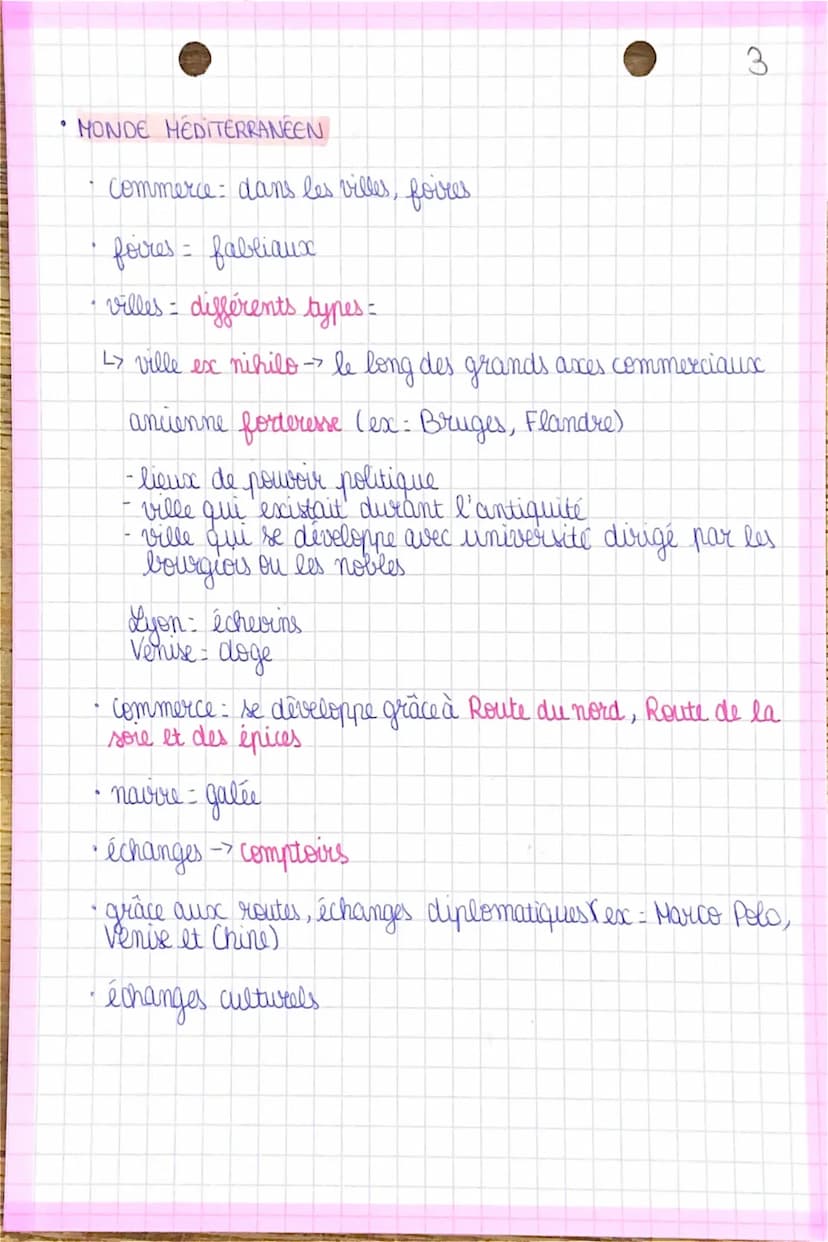 3
• MONDE MÉDITERRANÉEN
• commerce = dans les villes, foires
• foires = fabliaux
• villes = différents types =
↳ ville ex nihilo → le long des grands axes commerciaux
ancienne forteresse (ex = Bruges, Flandre)
- lieux de pouvoir politique
- ville qui existait durant l'antiquité
- ville qui se développe avec université dirigé par les
bourgeois ou les nobles
Lyon = échevins
Venise = doge
• commerce = se développe grâce à Route du nord, Route de la
soie et des épices
• navire = galée
• échanges → comptoirs
• grâce aux routes, échanges diplomatiques (ex = Marco Polo,
Venise et Chine)
• échanges culturels